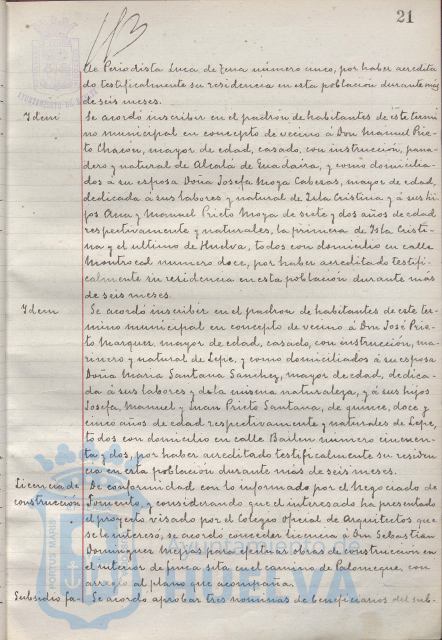 21
de Periodista Luca de Tena número cinco, por haber acredita
do testificalmente su residencia en esta población durante más
de seis meses.
Idem
Se acordó inscribir en el padrón de habitantes de este térmi
no municipal en concepto de vecino á Don Manuel Prie-
to Chacón, mayor de edad, casado, con instrucción, pana-
dero y natural de Alcalá de Guadaira, y como domicilia-
dos á su esposa Doña Josefa Moya Caberas, mayor de edad,
dedicada á sus labores y natural de Isla Cristina y á sus hi-
jos Ana y Manuel Prieto Moya de siete y dos años de edad
respectivamente y naturales, la primera de Isla Cristi-
na y el último de Huelva, todos con domicilio en calle
Montrocal número doce, por haber acreditado testifi-
calmente su residencia en esta población durante más
de seis meses.
Idem
Se acordó inscribir en el padrón de habitantes de este tér-
mino municipal en concepto de vecino á Don José Prie-
to Marquez, mayor de edad, casado, con instrucción, ma-
rinero y natural de Lepe, y como domiciliados á su esposa
Doña Maria Santana Sanchez, mayor de edad, dedica-
da á sus labores y de la misma naturaleza, y á sus hijos
Josefa, Manuel y Juan Prieto Santana, de quince, doce y
cinco años de edad respectivamente y naturales de Lepe,
todos con domicilio en calle Bailen número cincuen-
ta y dos, por haber acreditado testificalmente su residen
cia en esta población durante más de seis meses.
Licencia de
construcción
De conformidad con lo informado por el Negociado de
Fomento, y considerando que el interesado ha presentado
el proyecto visado por el Colegio Oficial de Arquitectos que
se le interesó, se acordó conceder licencia á Don Sebastián
Dominguez Mejias para efectuar obras de construcción en
el interior de finca, sita en el camino de Palomeque, con
arreglo al plano que acompaña.
Subsidio fa-
Se acordó aprobar tres nóminas de beneficiarios del sub-
Ayuntamiento de
HUELVA
PORTUS MARIS